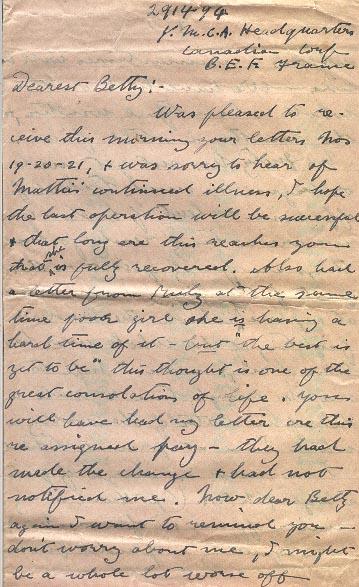 291494
Y.M.C.A. Headquarters
Canadian Corp
B.E.F. France
Dearest Betty:-
Was pleased to re-
ceive this morning your letters Nos
19-20-21, & was sorry to hear of
Mattie's continued illness, I hope
the last operation will be successful
& that long ere this reaches you
that is fully recovered. Also had
a letter from at the same
time poor girl she is having a
hard time of it - but "the best is
yet to be" this thought is one of the
great consolations of life. you
will have had my letter ere this
re assigned pay - they had
made the change & had not
notified me. Now dear Betty
again I want to remind you -
don't worry about me, I might
be a whole lot worse off